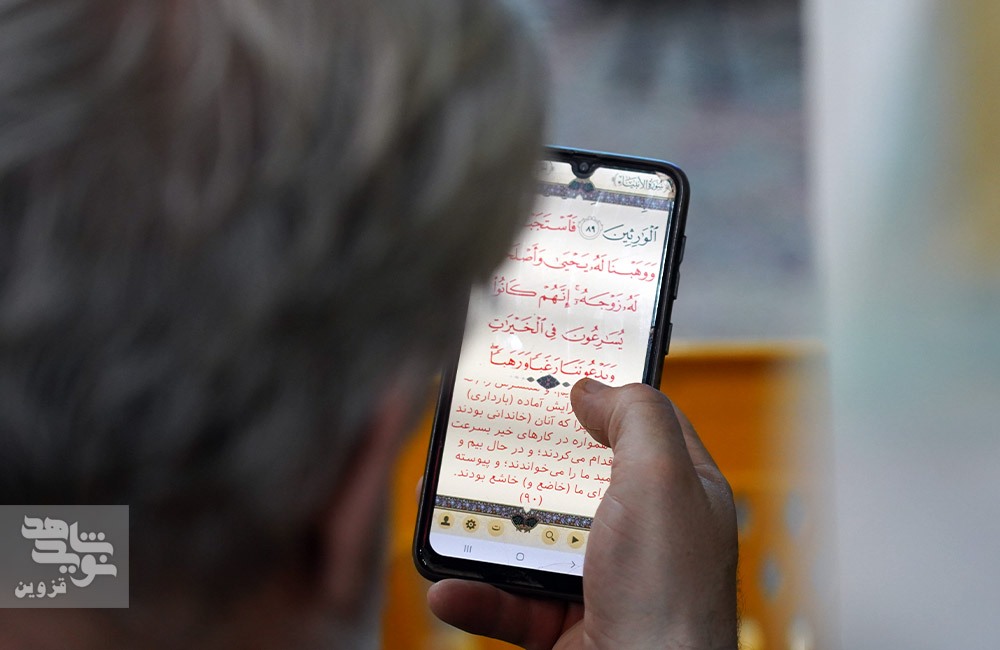 ﴿سُورَةُ الأَنبِيَاءِ﴾
ٱلۡوَٰرِثِينَ ٨٩
وَوَهَبۡنَا لَهُۥ يَحۡيَىٰ
لَهُۥ زَوۡجَهُۥٓۚ إِنَّهُمۡ كَانُواْ
يُسَٰرِعُونَ فِي ٱلۡخَيۡرَٰتِ
وَيَدۡعُونَنَا رَغَبٗا وَرَهَبٗاۖ
آماده (بارداری)
که آنان (خاندانی بودند
همواره در کارهای خیر بسرعت
اقدام می‌کردند؛ و در حال بیم و
ما را می‌خواندند؛ و پیوسته
ما (خاضع و) خاشع بودند.
(۹۰)
نوید شاهد
قزوین